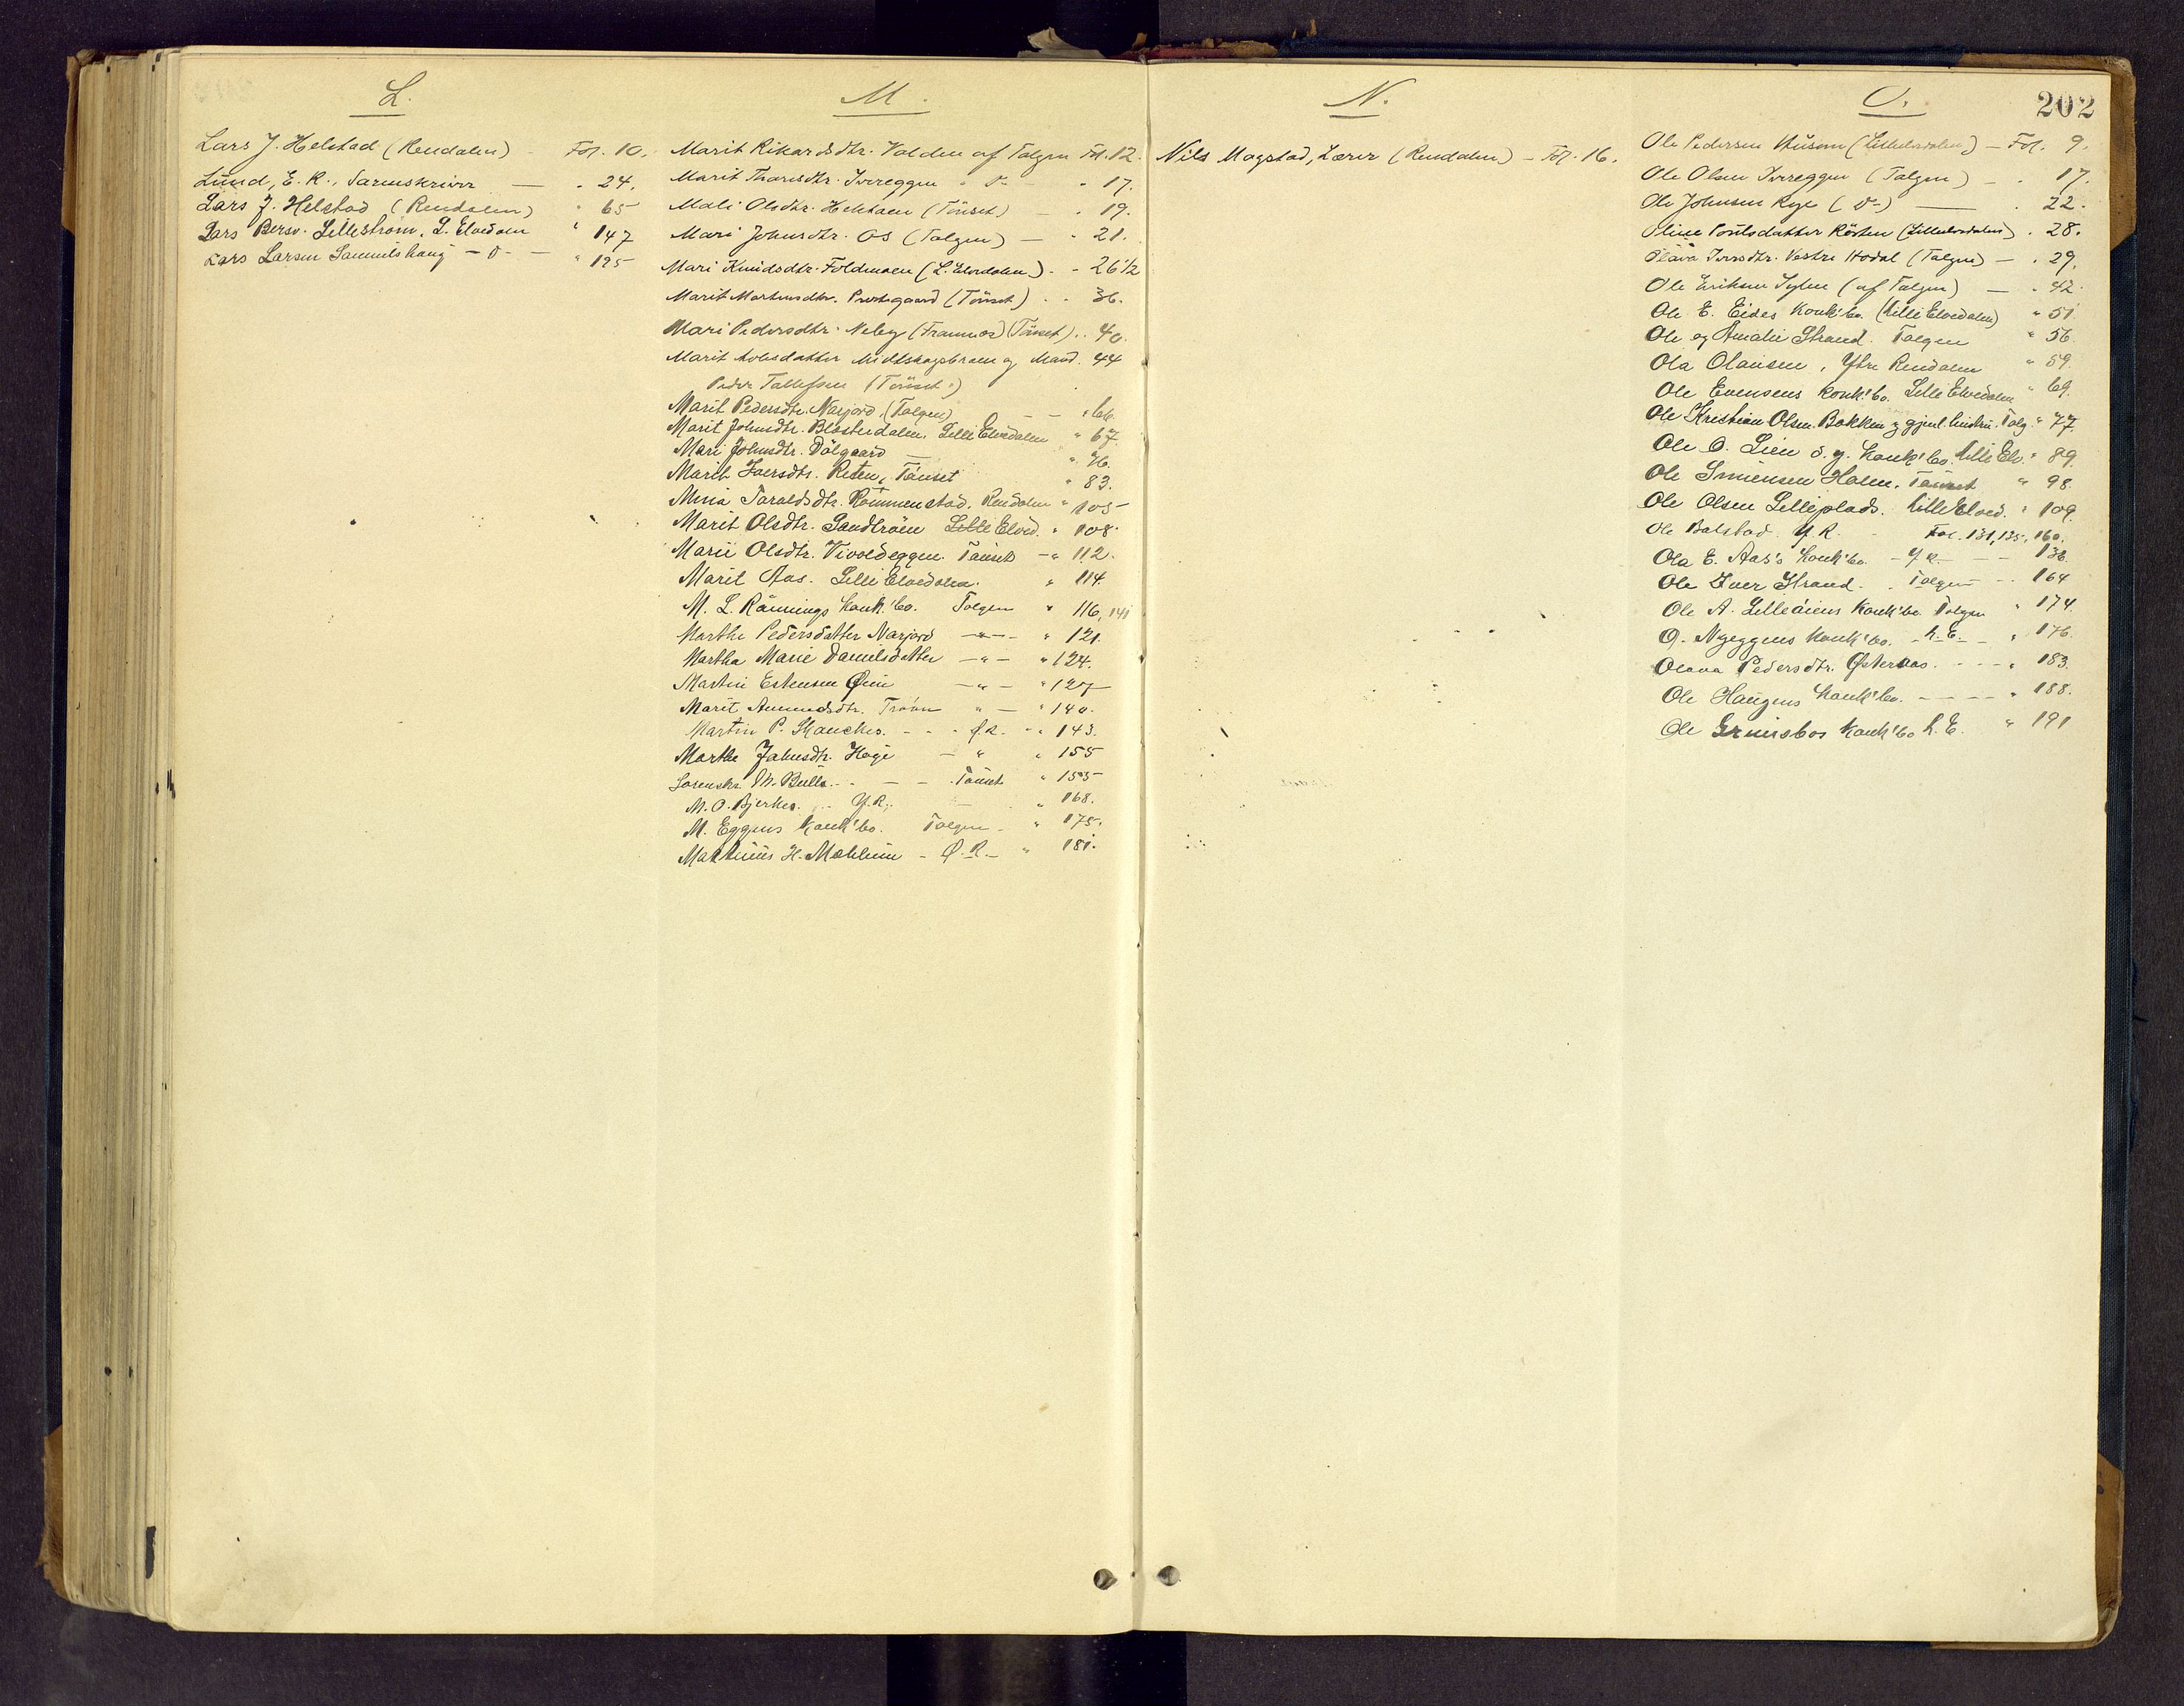 L.
Lars J. Helstad (Rendalen) Fol. 10.
Lund, E. R., Sorenskriver — " 24.
Lars J. Helstad (Rendalen) " 65
Lars Persv. Lilleström, L. Elvedalen " 147
Lars Larsen Samuelshaug — D — " 195
M.
Marit Rikardsdtr. Volden af Tolgen Fol. 12.
Marit Thoresdtr. Ivereggen " D — " 17.
Mali Olsdtr. (Tönset) — " 19.
Mari Johnsdtr. Os (Tolgen) — " 21.
Mari Knudsdtr. Foldmoen (L. Elvedalen) - - 26½
Marit Mortensdtr. Prestegaard (Tönset) . . 36.
Mari Pedersdtr. Neby (Frammos) (Tönset) . . 40.
Marit Midtskogsbraen og Mand. 44
Peder Tollefsen (Tönset)
Marit Pedersdtr. Narjord, (Tolgen) — — " 66.
Marit Johnsdtr. Blæsterdalen, Lille Elvedalen " 67
Mari Johnsdtr. Dølgaard — " 76.
Marit Iversdtr. Reten, Tönset " 83.
Mina Taraldsdtr. Rommenstad. Rendalen " 105
Marit Olsdtr. Sandtrøen Lille Elved. " 108
Marit Olsdtr. Vivoldeggen. Tönset — " 112.
Marit Aas. Lille Elvedalen. " 114.
M. L. Rønnings Konk.'bo. Tolgen " 116, 141
Marthe Pedersdatter Narjord — " — " 121.
Martha Marie Danielsdatter — " — " 124.
Martin Estensen Øien — " — " 127
Marit Amundsdtr. Trøen " — " 140.
Martin P. Skancke. - - Y.R. - " 143.
Marthe Johnsdtr. Hoge — " " 155
Sorenskr. M. Bulls - - — — Tönset " 155
M. O. Bjerkes. - - Y.R. " 168.
M. Eggens Konk'bo. Tolgen - " 175.
Martinus H. Mæhlum — Ø.R. — " 181.
N.
Nils Magstad, Lærer (Rendalen) — Fol. 16.
O.
202
Ole Pedersen Husom (Lilleelvedalen) — Fol. 9.
Ole Olsen Ivereggen (Tolgen) — . 17.
Ole Johnsen Rye (D—) — . 22.
Oline Povelsdatter Rösten (Lilleelvedalen) . 28.
Olava Iversdtr. Vestre Hodal (Tolgen) — . 29.
Ole Eriksen (af Tolgen) — . 42.
Ole E. Eides Konk'bo. (Lille Elvedalen) " 51
Ole og Amalie Strand. Tolgen " 56.
Ola Olausen, Ytre Rendalen " 59.
Ole Evensens Konk'bo. Lille Elvedalen " 69.
Ole Kristian Olsen Bakken og gjenl. Enke Tolg. " 77.
Ole O. Lien s. y. Konk'bo. Lille Elv. " 89.
Ole Simensen Holen. Tönset " 98.
Ole Olsen Lilleplads. Lille Elved. " 109.
Ole Balstad. Y.R. - Fol. 131, 135, 160.
Ola E. Aas's Konk'bo. — Y.R. — — 136.
Ole Iver Strand. . Tolgen — - 164
Ole A. Lilleøiens Konk'bo. Tolgen " 174.
O. Nyeggens Konk'bo. L. E. — " 176.
Olava Pedersdtr. Østeraas. - - - " 183.
Ole Haugens Konk'bo. — — — " 188.
Ole Grimsbos Konk'bo L. E. " 191